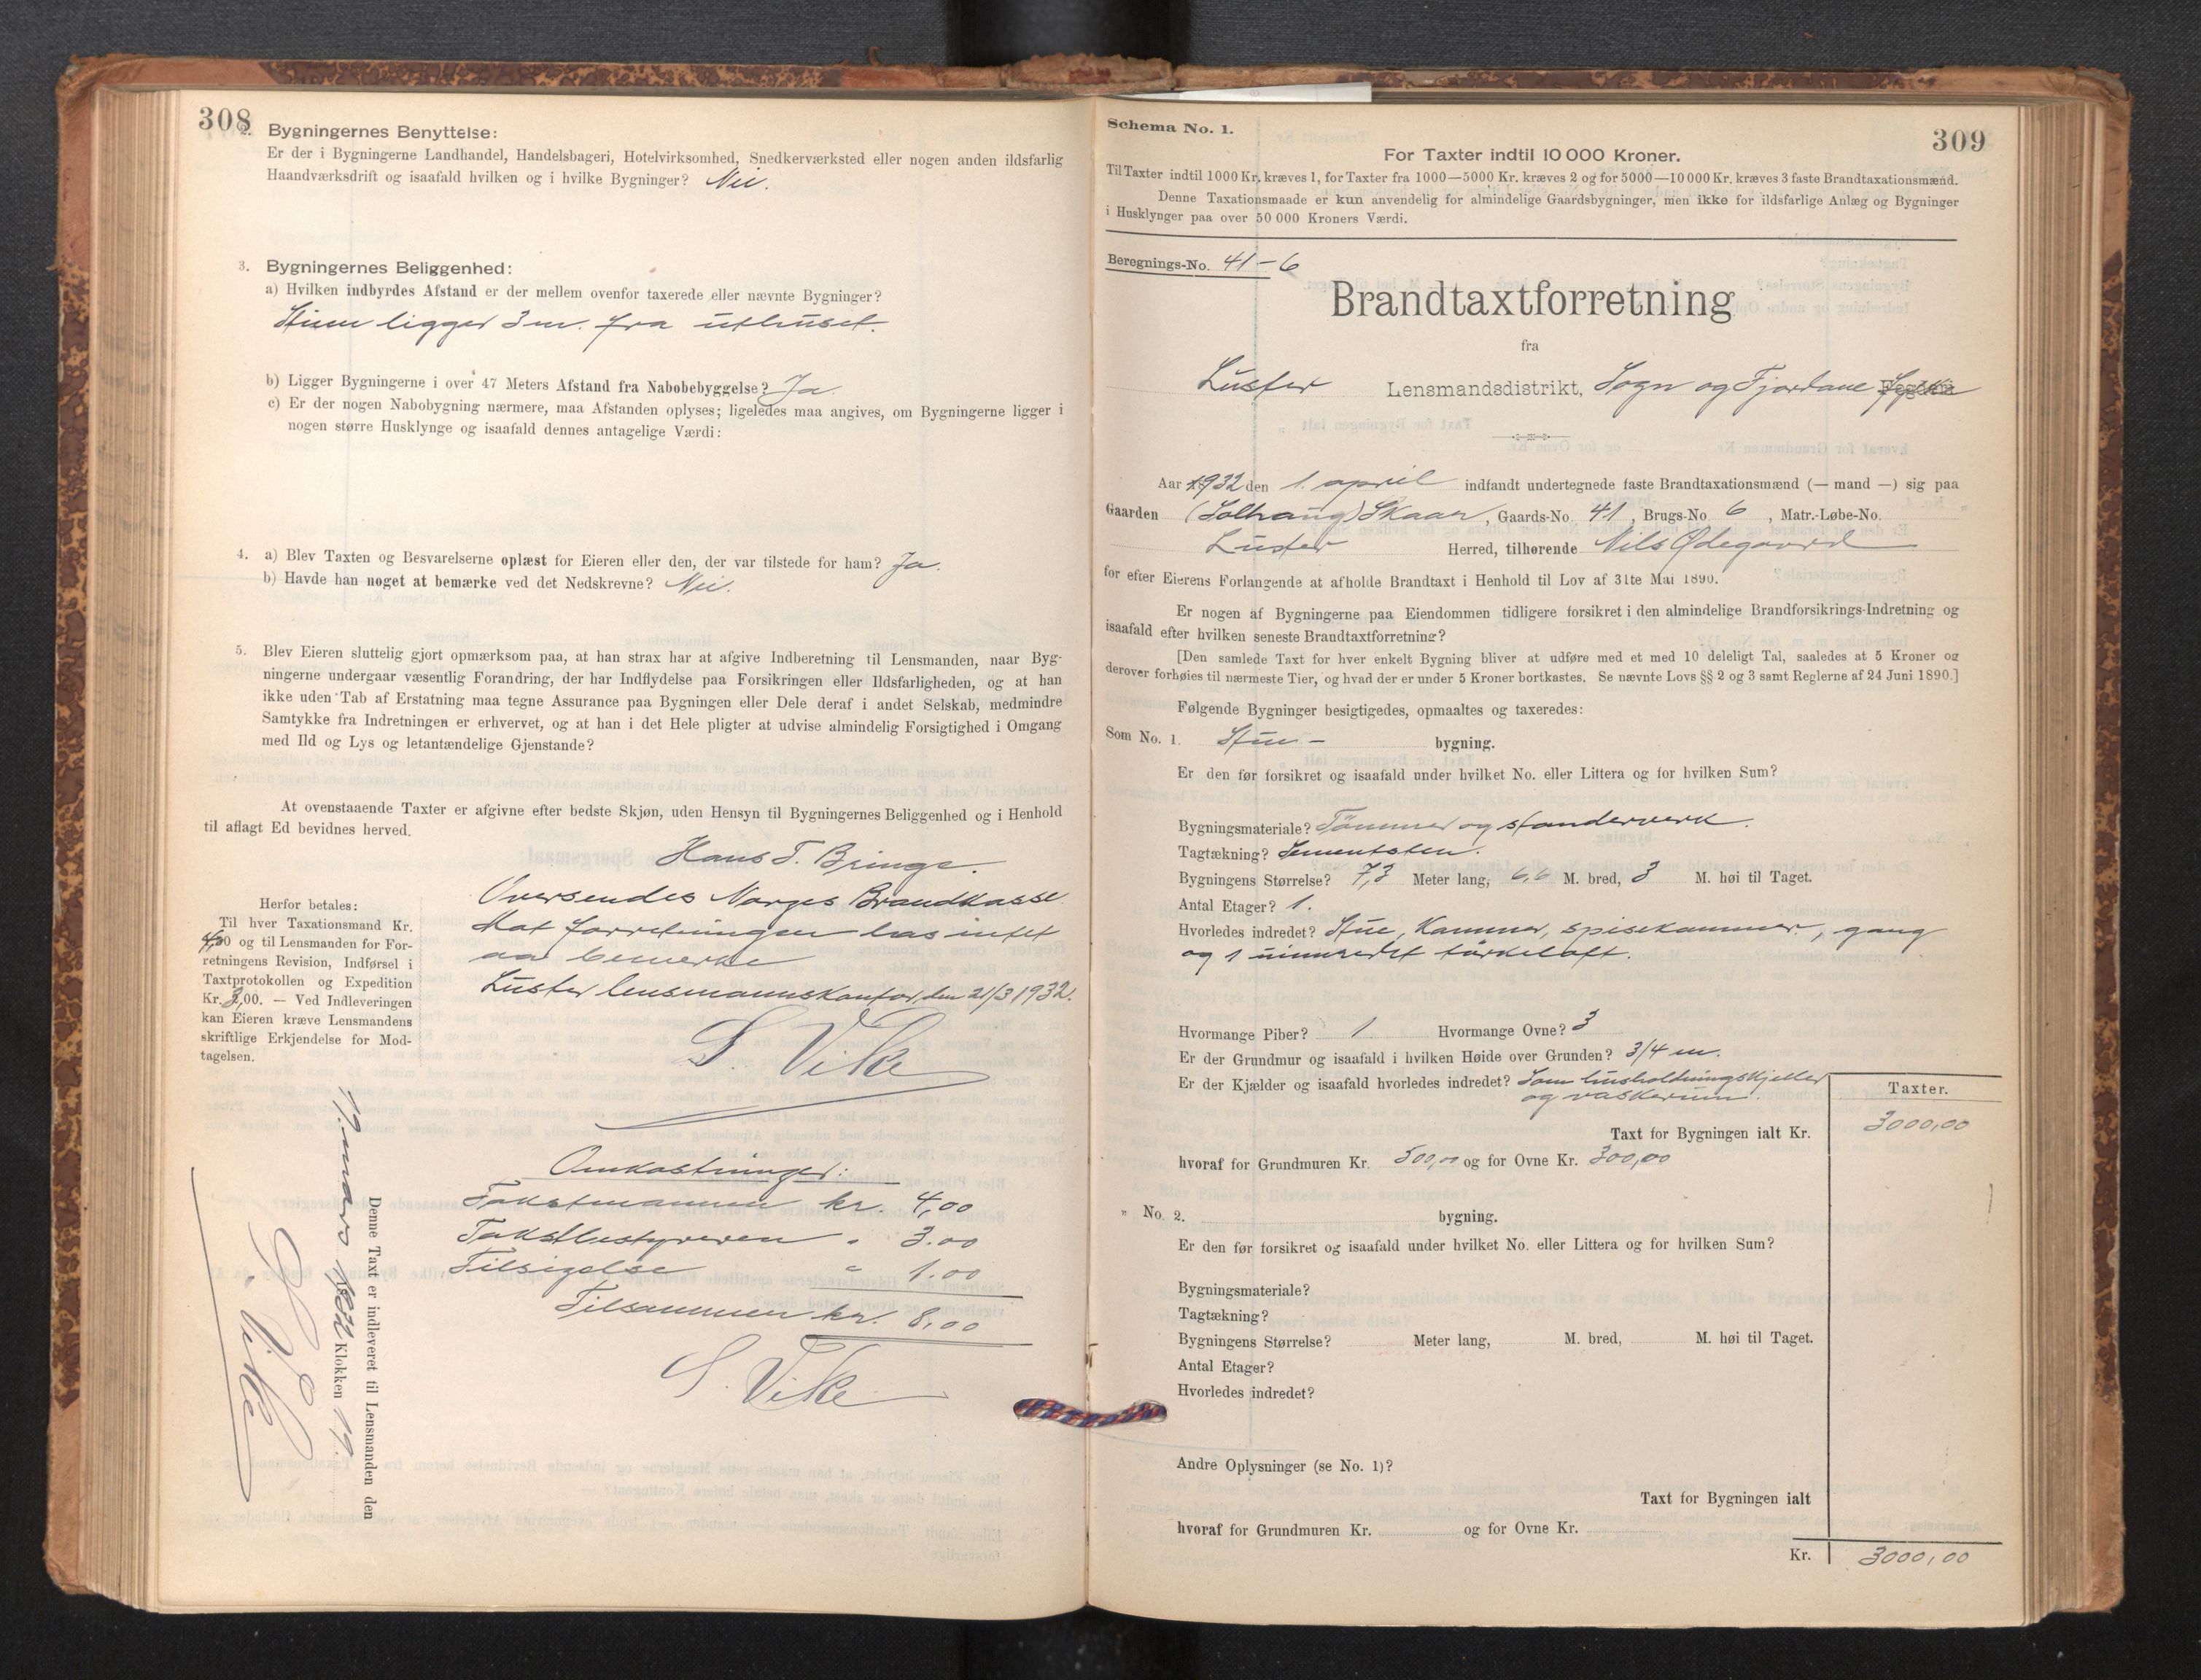 308
2. Bygningernes Benyttelse:
Er der i Bygningerne Landhandel, Handelsbageri, Hotelvirksomhed, Snedkerværksted eller nogen anden ildsfarlig
Haandværksdrift og isaafald hvilken og i hvilke Bygninger? Nei.
3. Bygningernes Beliggenhed:
a) Hvilken indbyrdes Afstand er der mellem ovenfor taxerede eller nævnte Bygninger?
Stuen ligger 3 m. fra uthuset.
b) Ligger Bygningerne i over 47 Meters Afstand fra Nabobebyggelse? Ja.
c) Er der nogen Nabobygning nærmere, maa Afstanden oplyses; ligeledes maa angives, om Bygningerne ligger i
nogen større Husklynge og isaafald dennes antagelige Værdi:
4. a) Blev Taxten og Besvarelserne oplæst for Eieren eller den, der var tilstede for ham? Ja.
b) Havde han noget at bemærke ved det Nedskrevne? Nei.
5. Blev Eieren sluttelig gjort opmærksom paa, at han strax har at afgive Indberetning til Lensmanden, naar Byg-
ningerne undergaar væsentlig Forandring, der har Indflydelse paa Forsikringen eller Ildsfarligheden, og at han
ikke uden Tab af Erstatning maa tegne Assurance paa Bygningen eller Dele deraf i andet Selskab, medmindre
Samtykke fra Indretningen er erhvervet, og at han i det Hele pligter at udvise almindelig Forsigtighed i Omgang
med Ild og Lys og letantændelige Gjenstande?
At ovenstaaende Taxter er afgivne efter bedste Skjøn, uden Hensyn til Bygningernes Beliggenhed og i Henhold
til aflagt Ed bevidnes herved.
Hans T. Bringe.
Oversendes Norges Brandkasse.
Mot forretningen has intet
aa bemerke
Luster lensmannskontor, den 21/3 1932.
S. Vike
Herfor betales:
Til hver Taxationsmand Kr.
4,00 og til Lensmanden for For-
retningens Revision, Indførsel i
Taxtprotokollen og Expedition
Kr. 3,00. — Ved Indleveringen
kan Eieren kræve Lensmandens
skriftlige Erkjendelse for Mod-
tagelsen.
Omkostninger:
Takstmannen kr. 4,00
Takstbestyreren " 3.00
Tilsigelse " 1.00
Tilsammen kr. 8,00
S. Vike
Denne Taxt er indleveret til Lensmanden den
mars 1932 Klokken 19.
S. Vike
309
Schema No. 1.
For Taxter indtil 10 000 Kroner.
Til Taxter indtil 1000 Kr. kræves 1, for Taxter fra 1000—5000 Kr. kræves 2 og for 5000—10 000 Kr. kræves 3 faste Brandtaxationsmænd.
Denne Taxationsmaade er kun anvendelig for almindelige Gaardsbygninger, men ikke for ildsfarlige Anlæg og Bygninger
i Husklynger paa over 50 000 Kroners Værdi.
Beregnings-No. 41-6
Brandtaxtforretning
fra
Luster Lensmandsdistrikt, Sogn og Fjordane
Aar 1932 den 1. april indfandt undertegnede faste Brandtaxationsmænd (— mand —) sig paa
Gaarden (Solhaug) Skaar, Gaards-No. 41, Brugs-No. 6, Matr.-Løbe-No.
Luster Herred, tilhørende Nils Ødegaard
for efter Eierens Forlangende at afholde Brandtaxt i Henhold til Lov af 31te Mai 1890.
Er nogen af Bygningerne paa Eiendommen tidligere forsikret i den almindelige Brandforsikrings-Indretning og
isaafald efter hvilken seneste Brandtaxtforretning?
[Den samlede Taxt for hver enkelt Bygning bliver at udføre med et med 10 deleligt Tal, saaledes at 5 Kroner og
derover forhøies til nærmeste Tier, og hvad der er under 5 Kroner bortkastes. Se nævnte Lovs §§ 2 og 3 samt Reglerne af 24 Juni 1890.]
Følgende Bygninger besigtigedes, opmaaltes og taxeredes:
Som No. 1. Stue- bygning.
Er den før forsikret og isaafald under hvilket No. eller Littera og for hvilken Sum?
Bygningsmateriale? Tömmer og standerverk.
Tagtækning? Sementsten.
Bygningens Størrelse? 7,3 Meter lang, 6,6 M. bred, 3 M. høi til Taget.
Antal Etager? 1.
Hvorledes indredet? Stue, Kammer, spisekammer, gang
og 1 uinnredet törkeloft.
Hvormange Piber? 1 Hvormange Ovne? 3
Er der Grundmur og isaafald i hvilken Høide over Grunden? 3/4 m.
Er der Kjælder og isaafald hvorledes indredet? Som husholdningskjeller
og vaskerum.
Taxter.
Taxt for Bygningen ialt Kr. 3000,00
hvoraf for Grundmuren Kr. 500,00 og for Ovne Kr. 300,00
" No. 2. bygning.
Er den før forsikret og isaafald under hvilket No. eller Littera og for hvilken Sum?
Bygningsmateriale?
Tagtækning?
Bygningens Størrelse? Meter lang, M. bred, M. høi til Taget.
Antal Etager?
Hvorledes indredet?
Andre Oplysninger (se No. 1)?
Taxt for Bygningen ialt
hvoraf for Grundmuren Kr. og for Ovne Kr.
Kr. 3000,00